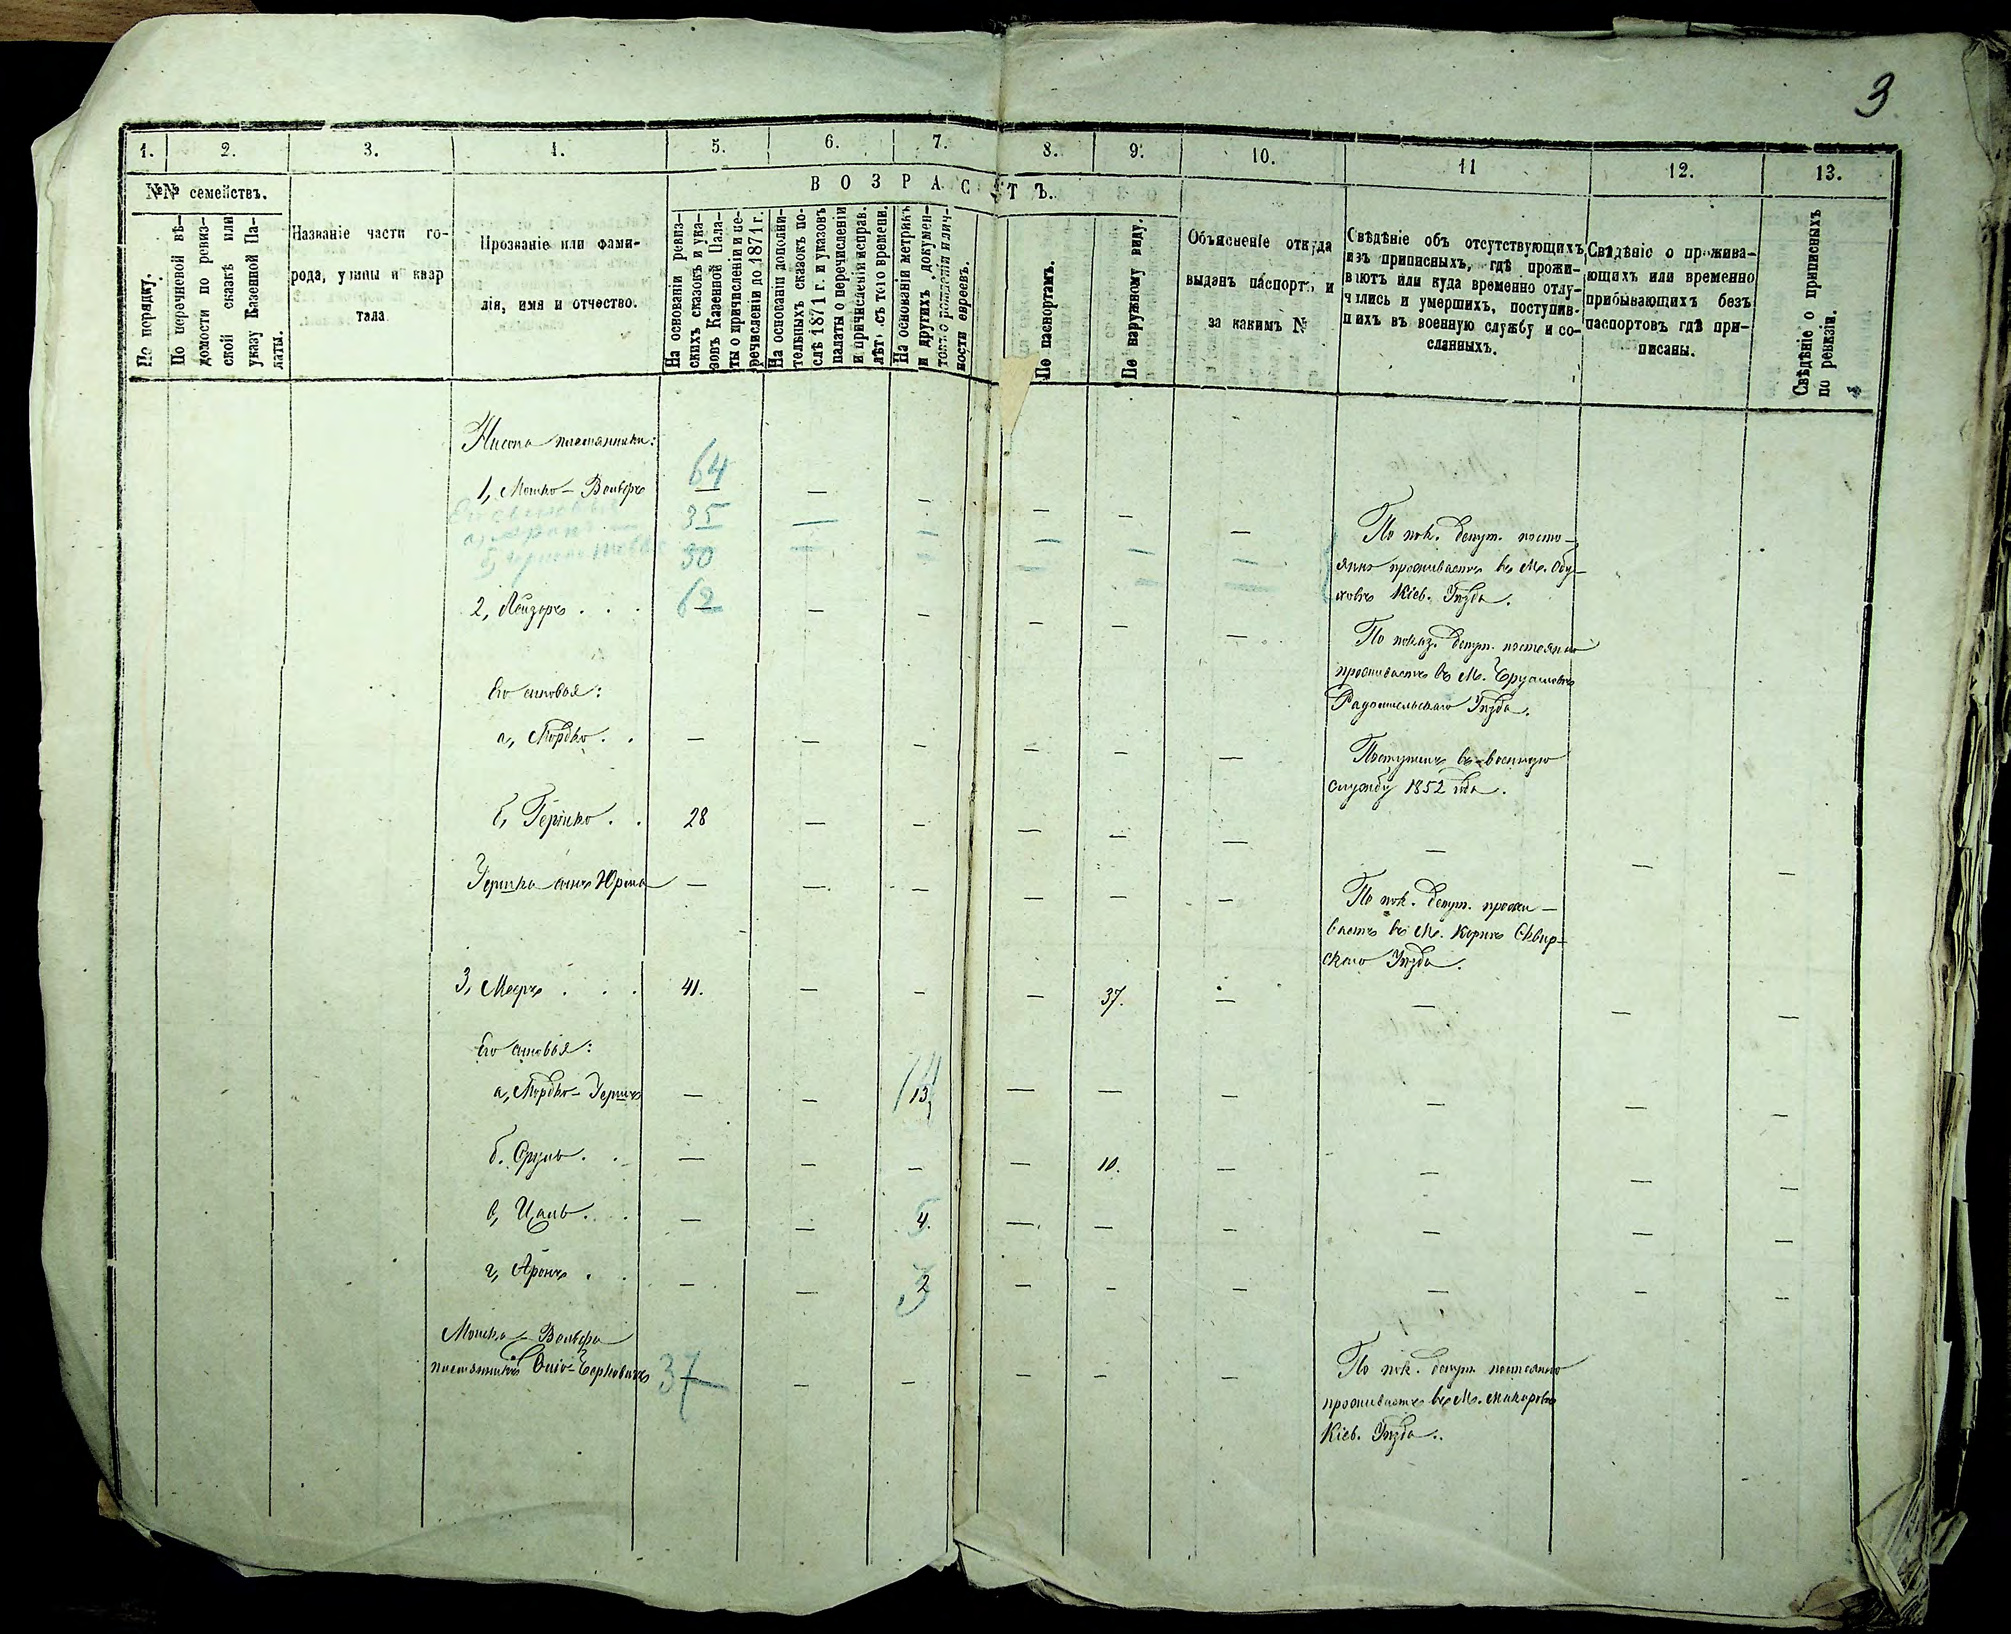 3
1. 2. 3. 4. 5. 6. 7. 8. 9. 10. 11 12. 13.
№№ семействъ.
ВОЗРАСТЪ.
По порядку.
По перечневой вѣ-
домости по ревиз-
ской сказкѣ или
указу Казенной Па-
латы.
Названіе части го-
рода, улицы и квар
тала.
Прозваніе или фами-
лія, имя и отчество.
На основаніи ревиз-
скихъ сказокъ и ука-
зовъ Казенной Пала-
ты о причисленіи и пе-
речисленіи до 1871 г.
На основаніи дополни-
тельныхъ сказокъ по-
слѣ 1871 г. и указовъ
палаты о перечисленіи
и причисленіи исправ.
лѣт. съ того времени.
На основаніи метрикъ
и другихъ докумен-
товъ о рожденіи и лич-
ности евреевъ.
По паспортамъ.
По наружному виду.
Объясненіе откуда
выданъ паспортъ и
за какимъ №
Свѣдѣніе объ отсутствующихъ
изъ приписныхъ, гдѣ прожи-
ваютъ или куда временно отлу-
чились и умершихъ, поступив-
шихъ въ военную службу и со-
сланныхъ.
Свѣдѣніе о прожива-
ющихъ или временно
прибывающихъ безъ
паспортовъ гдѣ при-
писаны.
Свѣдѣніе о приписныхъ
по ревизіи.
племянники:
1, Мошко-Вольфъ 64 — — — — —
Его сыновья
а, Аронъ — 35 — — — — —
30 — — — — —
По пок. депут. посто-
янно проживаетъ въ м. Обу-
ховѣ Кіев. Уѣзда.
2, Лейзоръ . . . 62 — — — — —
По показ. депут. постоянно
проживаетъ въ м.
Радомысльскаго Уѣзда.
Его сыновья:
а, Мордко . . — — — — — —
Поступилъ въ военную
службу 1852 года.
б, Гершко . . 28 — — — — — — — —
Гершка сынъ — — — — — —
По пок. депут. прожи-
ваетъ въ м. Корнинѣ Сквир-
скаго Уѣзда.
3, Мееръ . . . 41. — — — 37. — — — —
Его сыновья:
а, Мордко-Гершъ — — 13 14 — — — — —
б. Сруль . . — — — — 10. — — — —
в, Цаль . . . — — 4. 5 — — — — — —
г, Аронъ . . — — 2 3 — — — — — —
Мошка-Вольфа
племянникъ Берковичъ 37 — — — — —
По пок. депут. постоянно
проживаетъ въ м. Макаровѣ
Кіев. Уѣзда.